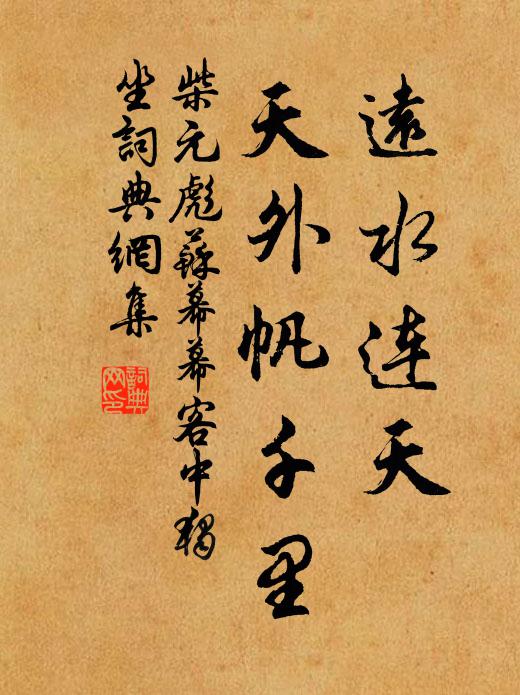 遠水連天
天外帆千里
柴元彪蘇幕幕客中獨
坐詞典網集
詞典
网印